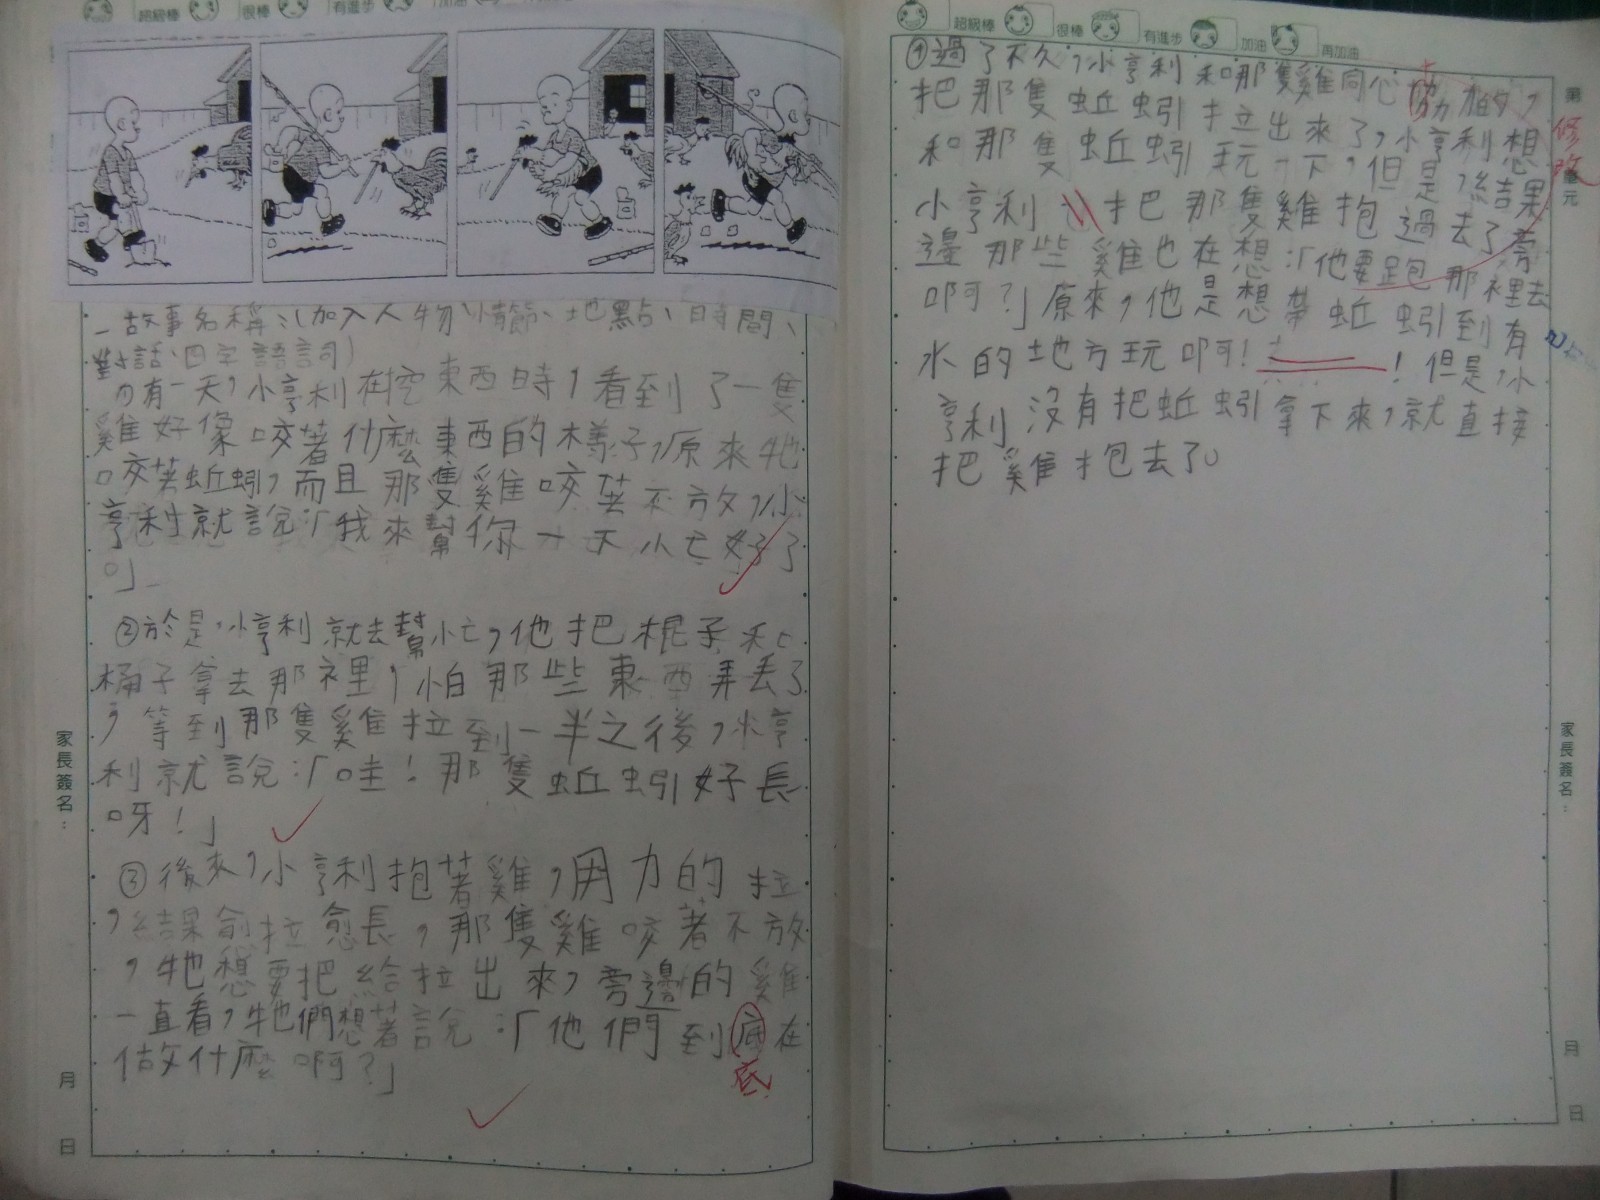 超級棒 很棒 有進步 加油
一故事名稱:(加入人物、情節、地點、時間、
對話、四字語詞)
(1)有一天,小亨利在挖東西時,看到了一隻
雞好像咬著什麼東西的樣子,原來牠
咬著蚯蚓,而且那隻雞咬著不放,小
亨利就說:「我來幫你一下小忙好了
。」
②於是,小亨利就去幫忙,他把棍子和
桶子拿去那裡,怕那些東西弄丟了
,等到那隻雞拉到一半之後,小亨
利就說:「哇!那隻蚯蚓好長
呀!」
③後來,小亨利抱著雞,用力的拉
,結果愈拉愈長,那隻雞咬著不放
,牠想要把給拉出來,旁邊的雞
一直看,牠們想著說:「他們到底在
底
做什麼啊?」
家長簽名:
月
日
超級棒 很棒 有進步 加油 再加油
④過了不久,小亨利和那隻雞同心協力的,
把那隻蚯蚓拉出來了,小亨利想
和那隻蚯蚓玩一下,但是,結果
小亨利把那隻雞抱過去了旁
邊那些雞也在想:「他要跑那裡去
啊?」原來,他是想帶蚯蚓到有
水的地方玩啊!!但是,小
亨利沒有把蚯蚓拿下來,就直接
把雞抱去了。
第
單元
修改
家長簽名:
月
日